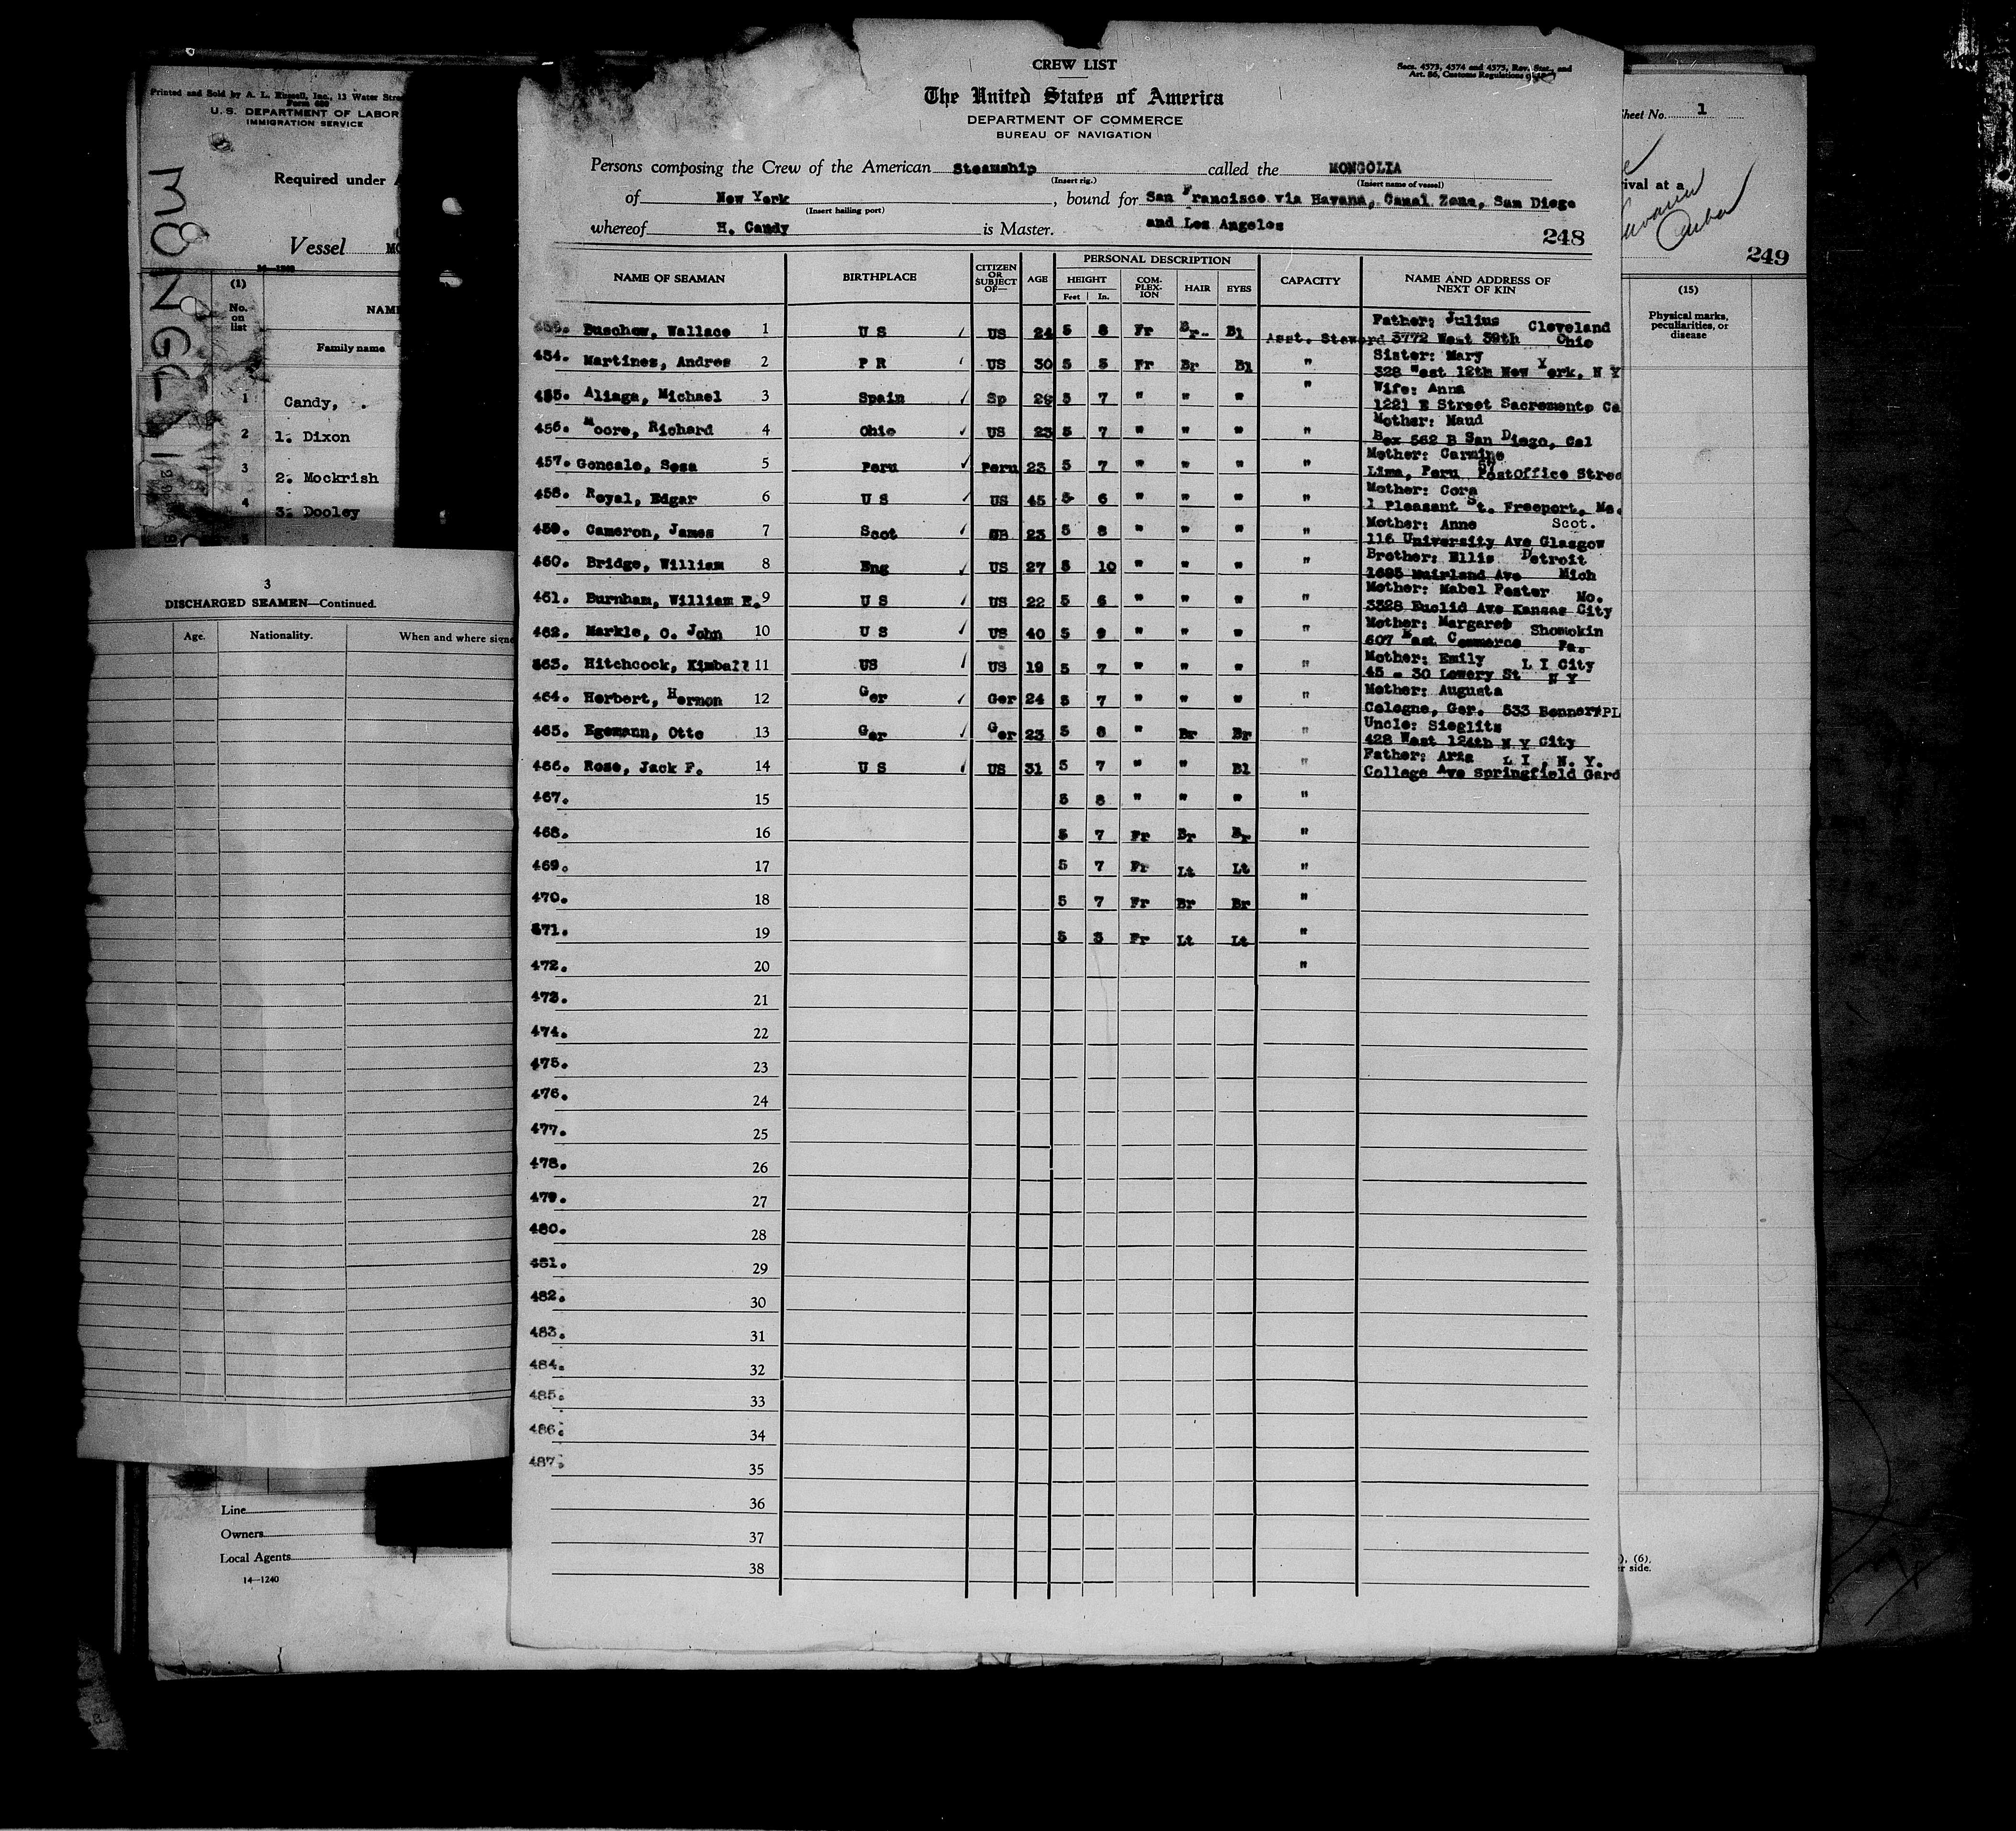 Printed and Sold by A. L. Russell, Inc., 13 Water Stre
Form 680
U. S. DEPARTMENT OF LABOR
IMMIGRATION SERVICE
Required under A
Vessel MO
14—1240
MONGOLIA
(1)
No. on list
NAME
Family name
1 Candy, .
2 1. Dixon
3 2. Mockrish
4 3. Dooley
5
3
DISCHARGED SEAMEN—Continued.
Age. Nationality. When and where signe
Line
Owners
Local Agents
14—1240
CREW LIST
Secs. 4573, 4574 and 4575, Rev. Stat., and
Art. 86, Customs Regulations
The United States of America
DEPARTMENT OF COMMERCE
BUREAU OF NAVIGATION
Persons composing the Crew of the American Steamship called the MONGOLIA
(Insert rig.) (Insert name of vessel)
of New York, bound for San Francisco via Havana, Canal Zone, San Diego
(Insert hailing port)
whereof H. Candy is Master. and Los Angeles
248
NAME OF SEAMAN BIRTHPLACE CITIZEN OR SUBJECT OF— AGE PERSONAL DESCRIPTION CAPACITY NAME AND ADDRESS OF NEXT OF KIN
HEIGHT COMPLEX-ION HAIR EYES
Feet In.
Father: Julius Cleveland
453. Buschow, Wallace 1 U S US 24 5 8 Fr Br Bl Asst. Steward 3772 West 39th Ohio
Sister: Mary
454. Martines, Andres 2 P R US 30 5 5 Fr Br Bl " 328 West 12th New York, N Y
Wife: Anna
455. Aliaga, Michael 3 Spain Sp 26 5 7 " " " " 1221 E Street Sacramento Ca
Mother: Maud
456. Moore, Richard 4 Ohio US 23 5 7 " " " " Box 562 B San Diego, Cal
Mother: Carmine
457. Goncale, Sosa 5 Peru Peru 23 5 7 " " " " Lima, Peru 57 Postoffice Stree
Mother: Cora
458. Royal, Edgar 6 U S US 45 5 6 " " " " 1 Pleasant St. Freeport, Me.
Mother: Anne Scot.
459. Cameron, James 7 Scot GB 23 5 8 " " " " 116 University Ave Glasgow
Brother: Ellis Detroit
460. Bridge, William 8 Eng US 27 5 10 " " " " 1685 Muirland Ave Mich
Mother: Mabel Foster Mo.
461. Burnham, William E. 9 U S US 22 5 6 " " " " 3328 Euclid Ave Kansas City
Mother: Margaret Shomokin
462. Markle, O. John 10 U S US 40 5 9 " " " " 607 East Commerce Pa.
Mother: Emily L I City
463. Hitchcock, Kimball 11 US US 19 5 7 " " " " 45 - 30 Lowery St N Y
Mother: Augusta
464. Herbert, Hermon 12 Ger Ger 24 5 7 " " " " Cologne, Ger. 533 Bonner PL
Uncle: Sieglitz
465. Egemann, Otto 13 Ger Ger 23 5 8 " Br Br " 428 West 124th N Y City
Father: Arza L I , N. Y.
466. Rose, Jack F. 14 U S US 31 5 7 " " Bl " College Ave Springfield Gard
467. 15 5 8 " " " "
468. 16 5 7 Fr Br Br "
469. 17 5 7 Fr Lt Lt "
470. 18 5 7 Fr Br Br "
471. 19 5 3 Fr Lt Lt "
472. 20 "
473. 21
474. 22
475. 23
476. 24
477. 25
478. 26
479. 27
480. 28
481. 29
482. 30
483. 31
484. 32
485. 33
486. 34
487. 35
36
37
38
Sheet No. 1
rival at a
249
(15)
Physical marks, peculiarities, or disease
), (6),
er side.